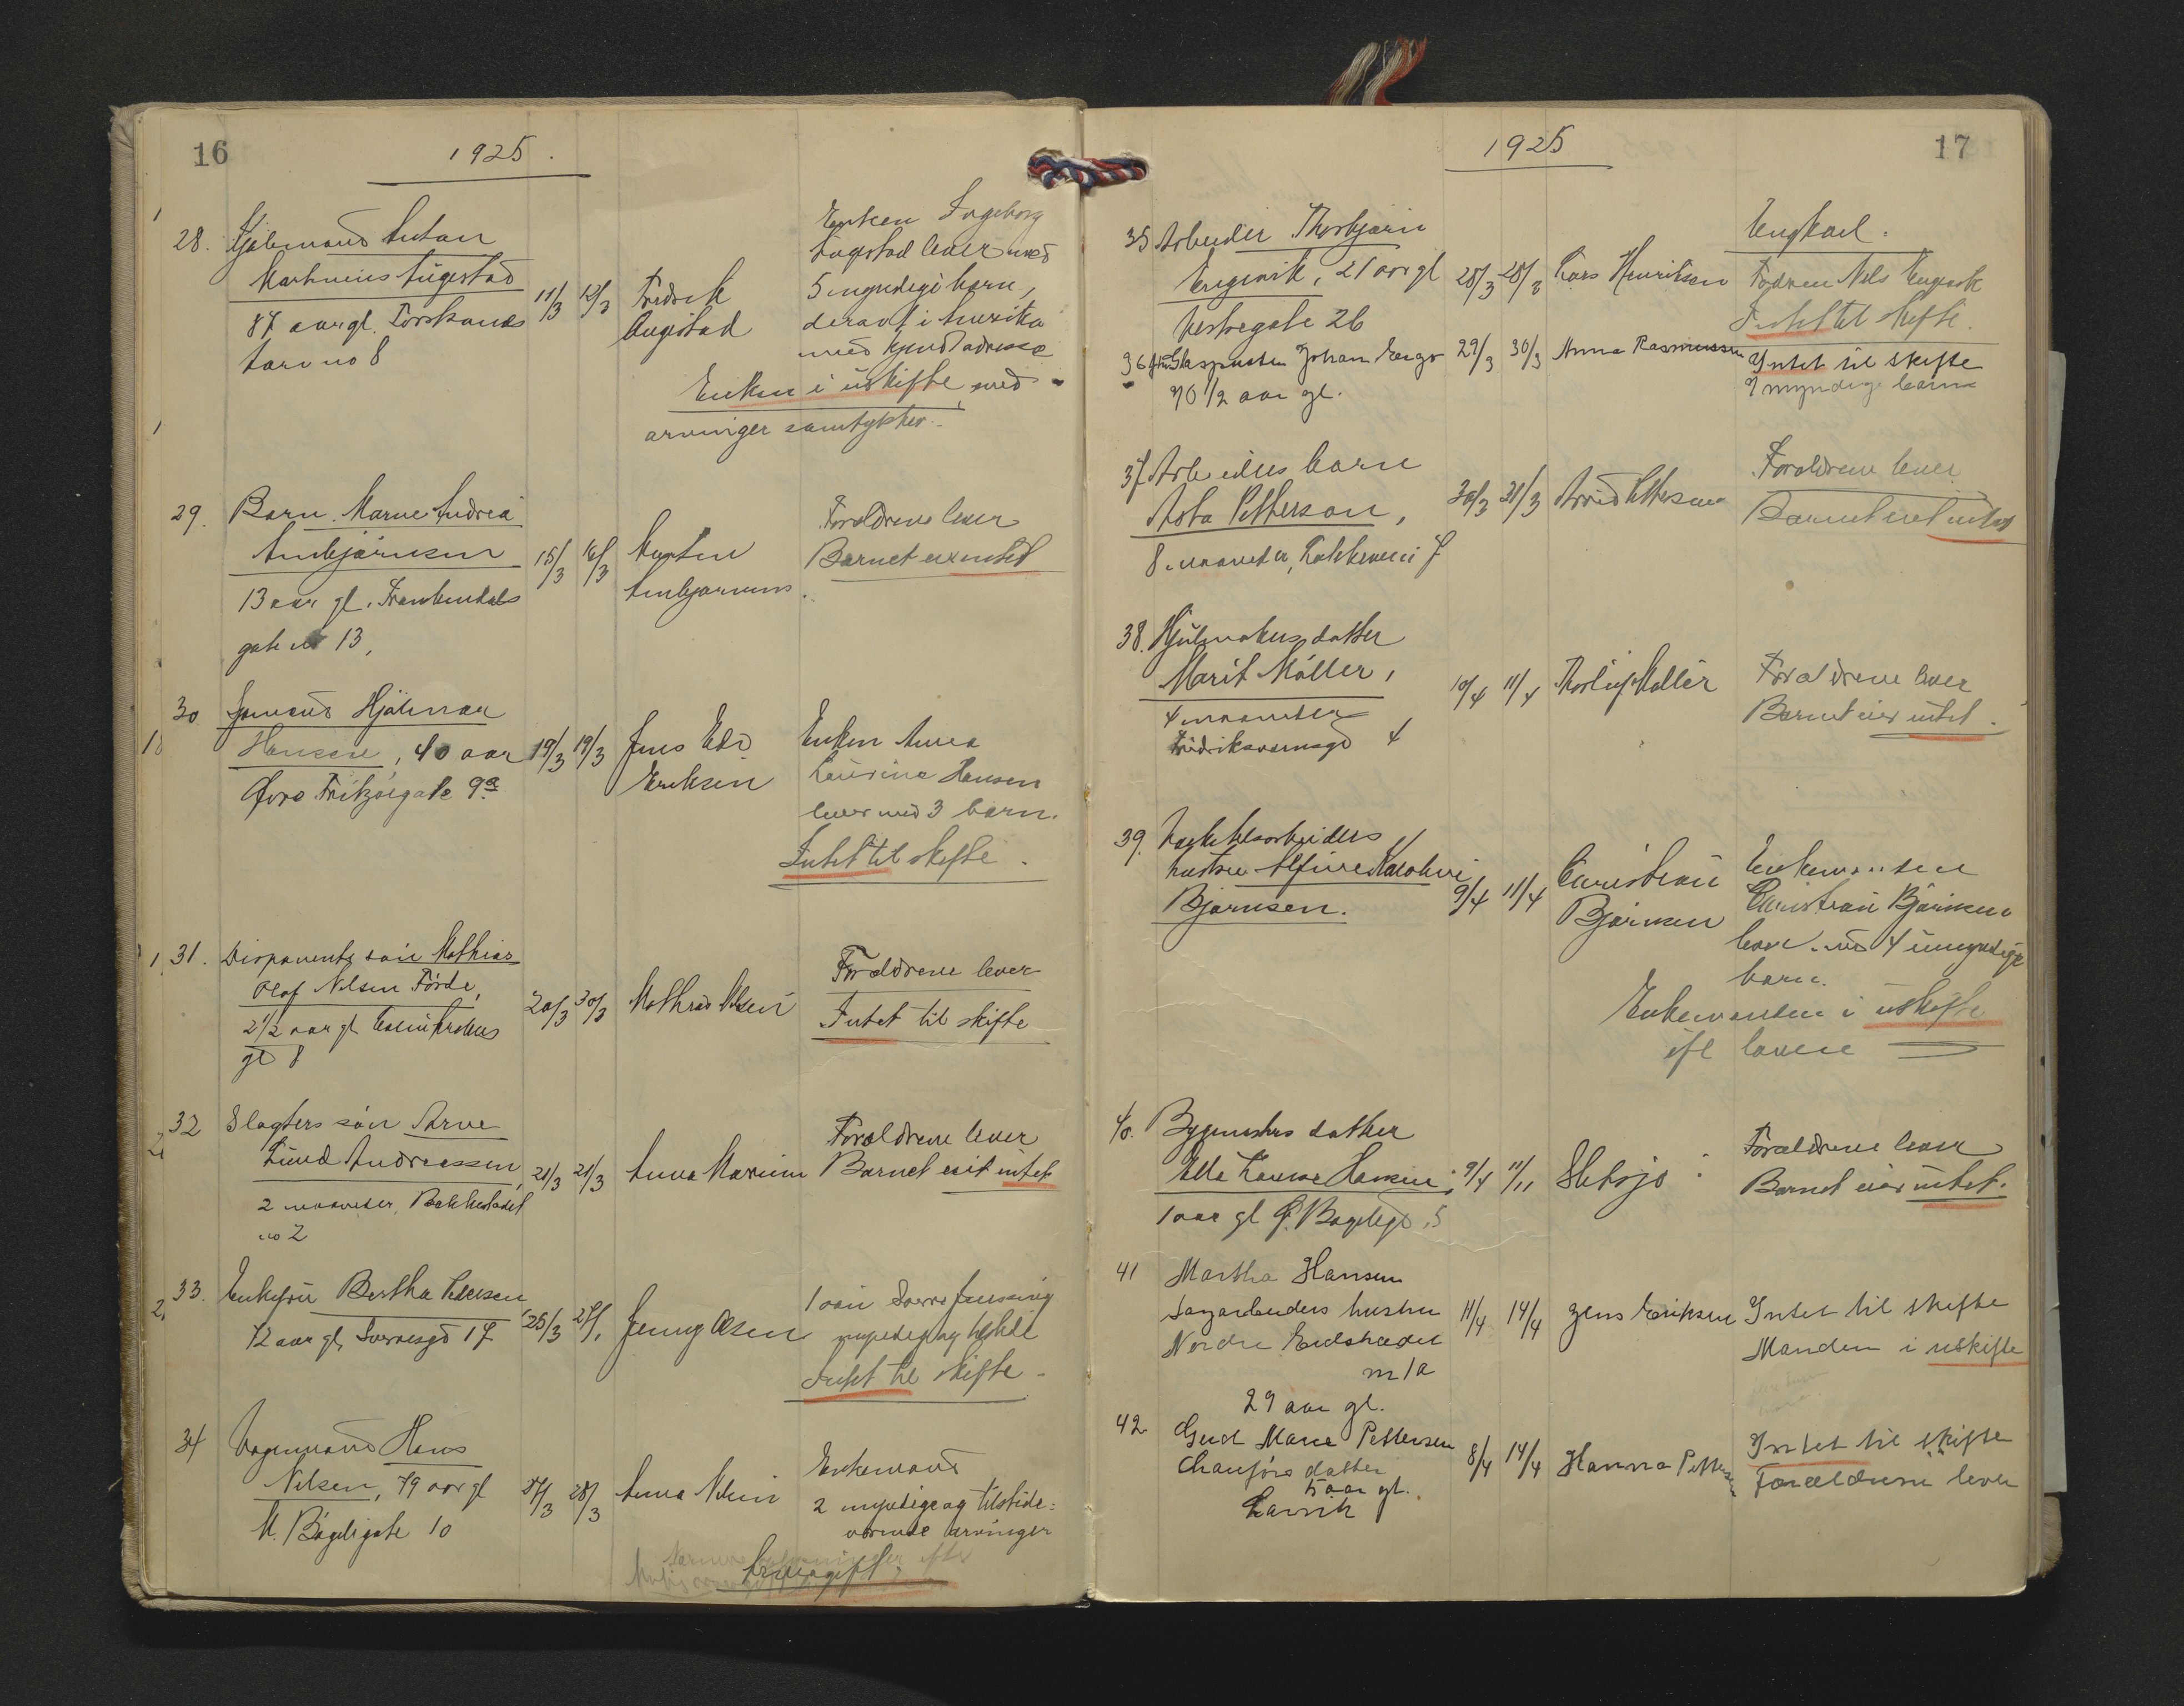 16
1925.
28. Sjømand Anton
Martinius Augestad
87 aar gl. Torstrands
11/3 12/3
Fredrik
Augestad
Enken Ingeborg
Augstad lever med
5 myndige barn,
derav 1 i Amerika
med kjendt adresse
Enken i uskifte med
arvinger samtykker.
29. Barn Marne Andrea
Arnbjørnsen
13 aar gl.
gate no 13,
15/3 16/3
Forældrene lever
Barnet eier intet
30 Sjømand Hjalmar
Hansen, 40 aar
Øvre Fritzøegate 9a
19/3 19/3
Jens Edv
Eriksen
Enken Anna
Laurine Hansen
lever med 3 barn.
Intet til skifte.
31. Disponents søn Mathias
Olaf Nilsen Førde,
2 1/2 aar gl
gt 8
20/3 30/3
Mathias Nilsen
Forældrene lever
Intet til skifte
32 Slagters søn Arve
Lund Andreassen,
2 maaneder, Bakkestadet
no 2
21/3 21/3
Anna
Forældrene lever
Barnet eier intet
33. Enkefru Bertha Pedersen
72 aar gl, 17
25/3 27/
Jenny Olsen
1 søn
myndig og tilstede
Intet til skifte.
34 Vognmand Hans
Nilsen, 79 aar gl
N. Bøgeligate 10
27/3 28/3
Anna Nilsen
Enkemand
2 myndige og tilstede-
værende arvinger
Arveavgift.
1925
17
35 Arbeider Thorbjørn
Engevik, 21 aar gl
Vestregate 26
28/3 28/3
Lars Henriksen
Ungkarl.
Fadren Nils Engevik
Intet til skifte.
36 Glaspuster Johan
70 1/2 aar gl.
29/3 30/3
Anna Rasmussen
Intet til skifte
7 myndige barn
37. Arbeiders barn
Asta Petterson,
8 maaneder, 7
30/3 31/3
Arvid Petterson
Forældrene lever
Barnet eier intet
38. Hjulmakers datter
Marit Møller,
4 maaneder
Fredriksværnsgt 4
10/4 11/4
Thorleif Møller
Forældrene lever
Barnet eier intet.
39.
hustru Alfine Karoline
Bjørnsen.
9/4 11/4
Christian
Bjørnsen
Enkemanden
Christian Bjørnsen
lever med 4 umyndige
barn.
Enkemanden i uskifte
ifl loven
40. Bygmesters datter
Else Louise Hansen,
1 aar gl Ø. Bøgeligt 5
9/4 11/11
Sletsjø
Forældrene lever
Barnet eier intet.
41 Martha Hansen
Sagarbeiders hustru
Nordre Eidstrædet
no 1a
29 aar gl.
11/4 14/4
Jens Eriksen
Intet til skifte
Manden i uskifte
42 Gud Marie Pettersen
Chauførs datter
5 aar gl.
Larvik
8/4 14/4
Hanna Pettersen
Intet til skifte
Forældrene lever